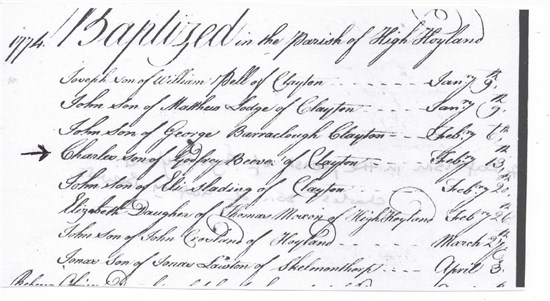 1774. Baptized in the Parish of High Hoyland
Joseph Son of William Bell of Clayton --- Jany 9th
John Son of Matthew Lodge of Clayton ---- Jany 9th
John Son of George Barraclough Clayton --- Feby 6th
Charles Son of Godfrey Beever of Clayton --- Feby 13th
John Son of Eli Slading of Clayton --- Feby 20
Elizabeth Daugher of Thomas Moxon of High Hoyland Feby 26
John Son of John Crosland of Hoyland ---- March
Jonas Son of Jonas Lawton of Skelmanthorp ---- April 3